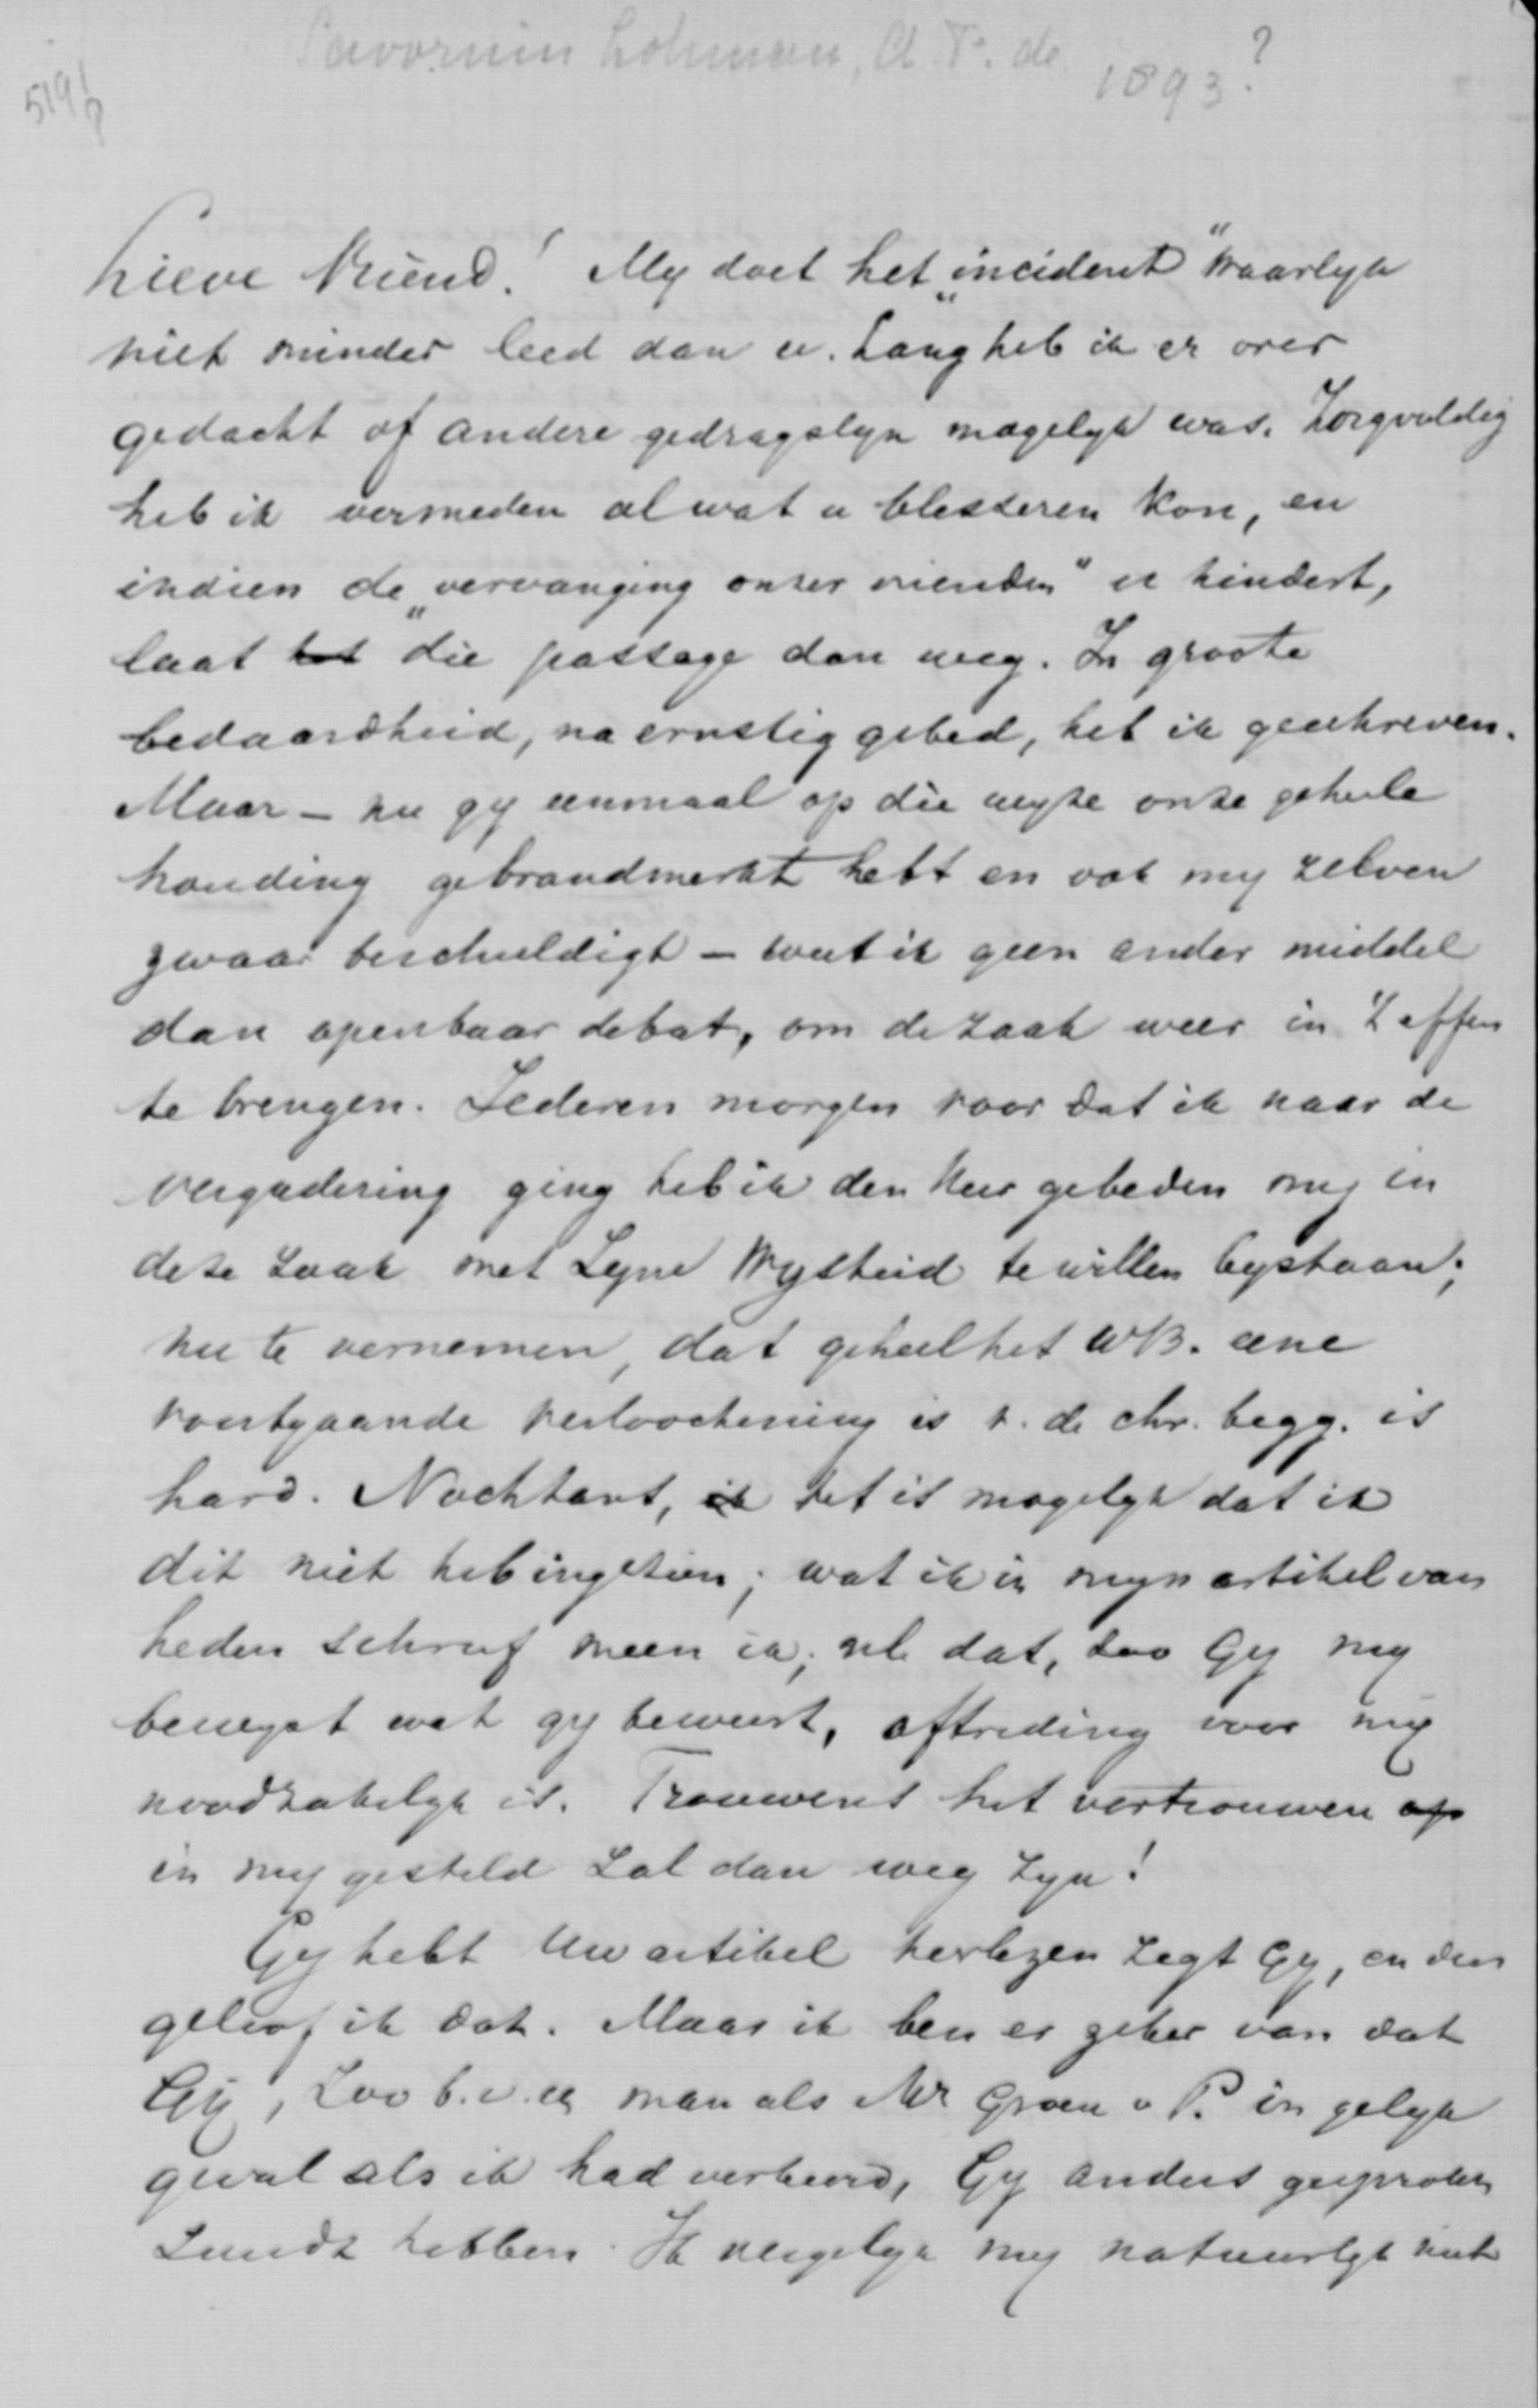 Savornin Lohman, A. F. de 1893?
5196
Lieve Vriend! My doet het „incident" waarlyk
niet minder leed dan u. Lang heb ik er over
gedacht of andere gedragslyn mogelyk was. Zorgvuldig
heb ik vermeden al wat u blesseren kon, en
indien de „vervanging onzer vrienden" u hindert,
laat het die passage dan weg. In groote
bedaardheid, na ernstig gebed, heb ik geschreven.
Maar – nu gy eenmaal op die wyze onze geheele
houding gebrandmerkt hebt en ook my zelven
zwaar beschuldigt – weet ik geen ander middel
dan openbaar debat, om de zaak weer in 't effen
te brengen. Iederen morgen voor dat ik naar de
vergadering ging heb ik den Heer gebeden my in
deze zaak met Zyne Wysheid te willen bystaan;
nu te vernemen, dat geheel het WB. eene
voortgaande verloochening is v. de chr. begg. is
hard. Nochtans, ik het is mogelyk dat ik
dit niet heb ingezien; wat ik in myn artikel van
heden schreef meen ik; nl. dat, zoo Gy my
bewyst wat gy beweert, aftreding voor my
noodzakelyk is. Trouwens het vertrouwen op
in my gesteld zal dan weg zyn!
Gy hebt Uw artikel herlezen zegt Gy, en dus
geloof ik dat. Maar ik ben er zeker van dat
Gy, zoo b.v. een man als Mr Groen v P. in gelyk
geval als ik had verkeerd, Gy anders gesproken
zoudt hebben. Ik vergelyk my natuurlyk niet